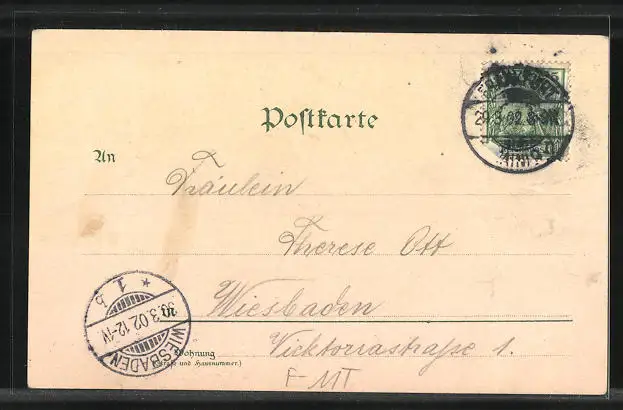 Postkarte
An
Fräulein
Therese Ott
in
Wiesbaden
Wohnung
(Straße und Hausnummer.)
Vicktoriastraße 1.
F-MT
29.3.02
WIESBADEN
30.3.02.12-1V
* 1 b
5